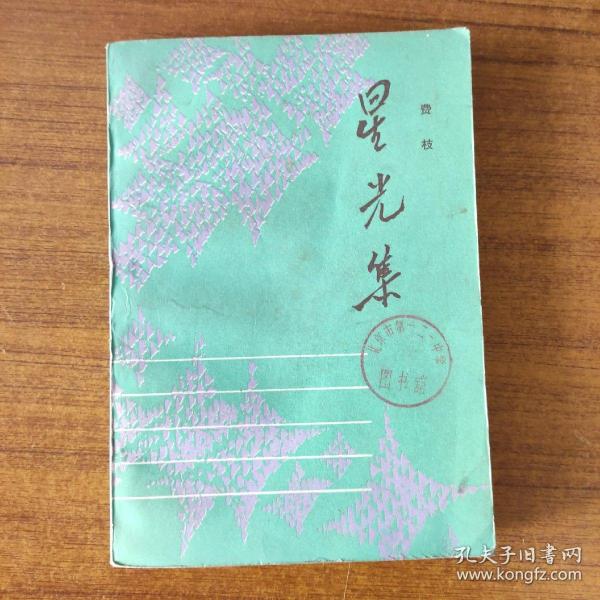 星光集
费枝
北京市第一二一中学
图书馆
孔夫子旧书网
www.kongfz.com